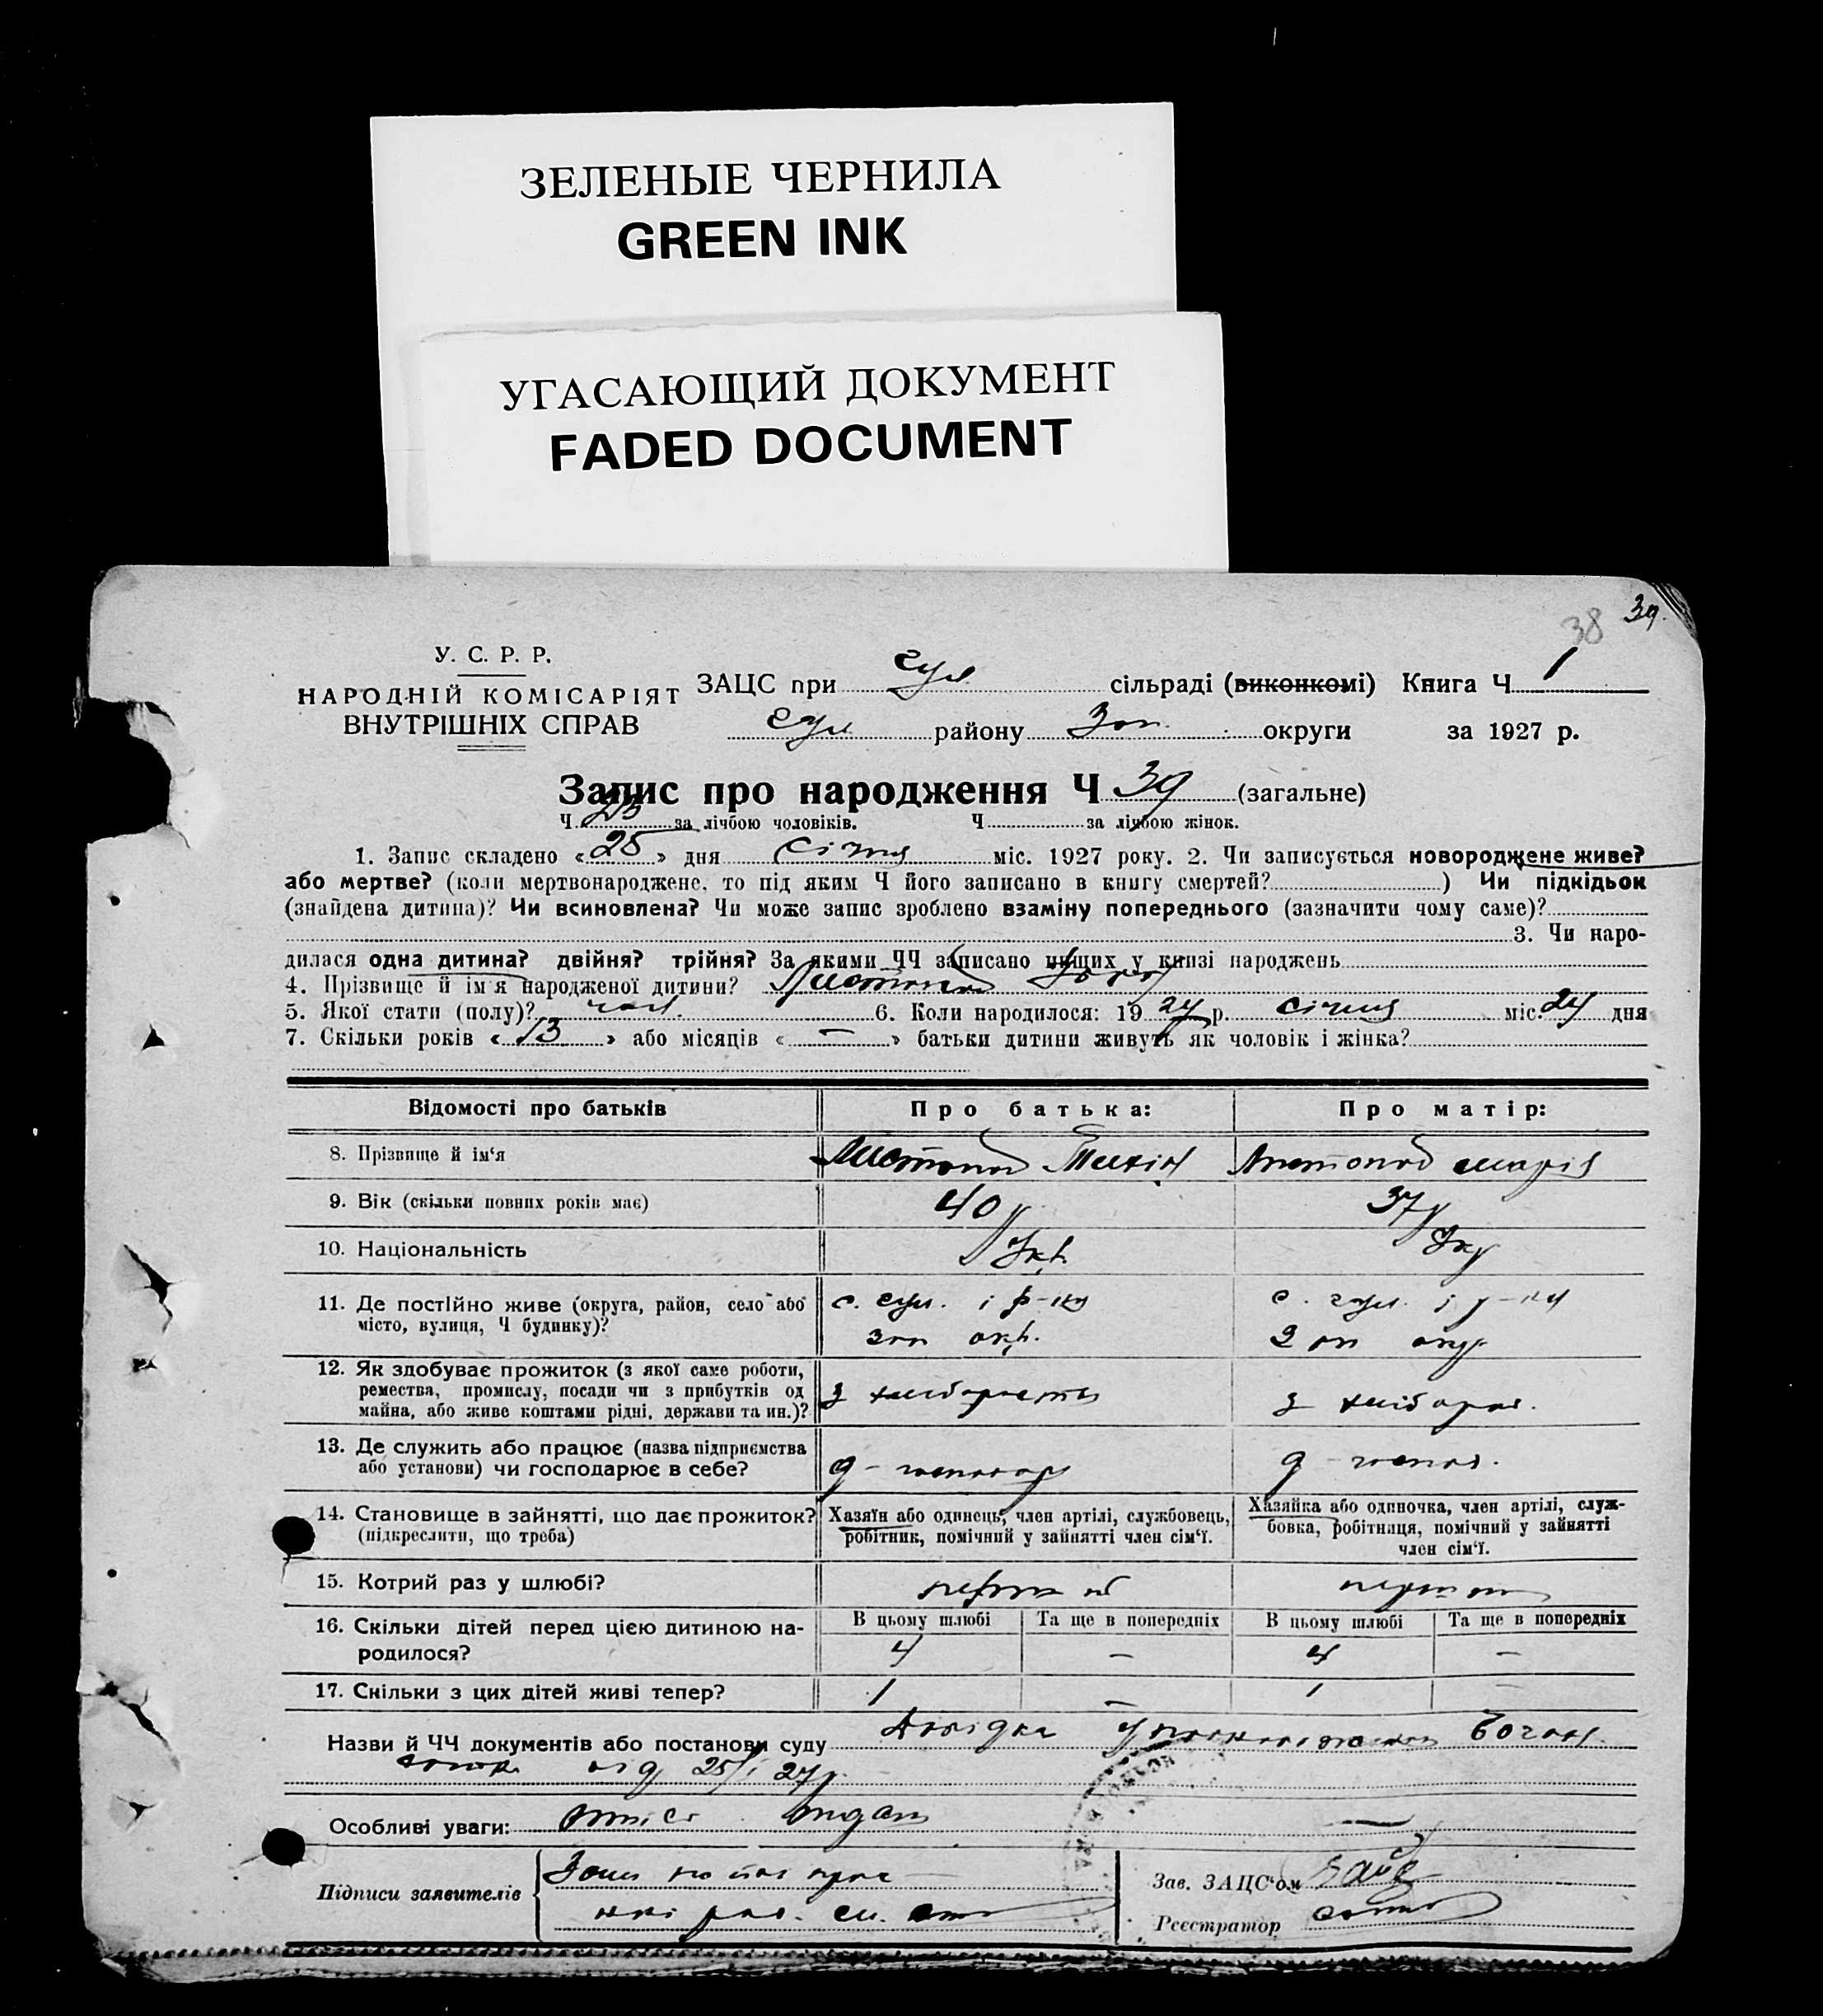 ЗЕЛЕНЫЕ ЧЕРНИЛА
GREEN INK
УГАСАЮЩИЙ ДОКУМЕНТ
FADED DOCUMENT
38 39.
У. С. Р. Р.
НАРОДНІЙ КОМІСАРІЯТ
ВНУТРІШНІХ СПРАВ
ЗАЦС при сільраді (виконкомі) Книга Ч 1
району Зап. округи за 1927 р.
Запис про народження Ч 39 (загальне)
Ч за лічбою чоловіків. Ч за лічбою жінок.
1. Запис складено «25» дня січня міс. 1927 року. 2. Чи записується новороджене живе?
або мертве? (коли мертвонароджене, то під яким Ч його записано в книгу смертей?) Чи підкідьок
(знайдена дитина)? Чи всиновлена? Чи може запис зроблено взаміну попереднього (зазначити чому саме)?
3. Чи наро-
дилася одна дитина? двійня? трійня? За якими ЧЧ записано инших у книзі народжень
4. Прізвище й ім'я народженої дитини? Листопад
5. Якої стати (полу)? чол. 6. Коли народилося: 19 27 р. січня міс. 24 дня
7. Скільки років «13» або місяців «—» батьки дитини живуть як чоловік і жінка?
Відомості про батьків Про батька: Про матір:
8. Прізвище й ім'я Листопад Листопад Марія
9. Вік (скільки повних років має) 40 37
10. Національність Укр. Укр
11. Де постійно живе (округа, район, село або
місто, вулиця, Ч будинку)?
с. і р-ну с. і р-ну
зап окр. Зап окр
12. Як здобуває прожиток (з якої саме роботи,
ремества, промислу, посади чи з прибутків од
майна, або живе коштами рідні, держави та ин.)?
з хліборобства з хлібороб.
13. Де служить або працює (назва підприємства
або установи) чи господарює в себе?
14. Становище в зайнятті, що дає прожиток?
(підкреслити, що треба)
Хазяїн або одинець, член артілі, службовець,
робітник, помічний у зайнятті член сім'ї.
Хазяйка або одиночка, член артілі, служ-
бовка, робітниця, помічний у зайнятті
член сім'ї.
15. Котрий раз у шлюбі?
16. Скільки дітей перед цією дитиною на-
родилося?
В цьому шлюбі Та ще в попередніх В цьому шлюбі Та ще в попередніх
4 — 4 —
17. Скільки з цих дітей живі тепер? 1 — 1 —
Назви й ЧЧ документів або постанови суду Довідка
від 25/I 27 р.
Особливі уваги:
Підписи заявителів
Зав. ЗАЦС'ом
Реєстратор